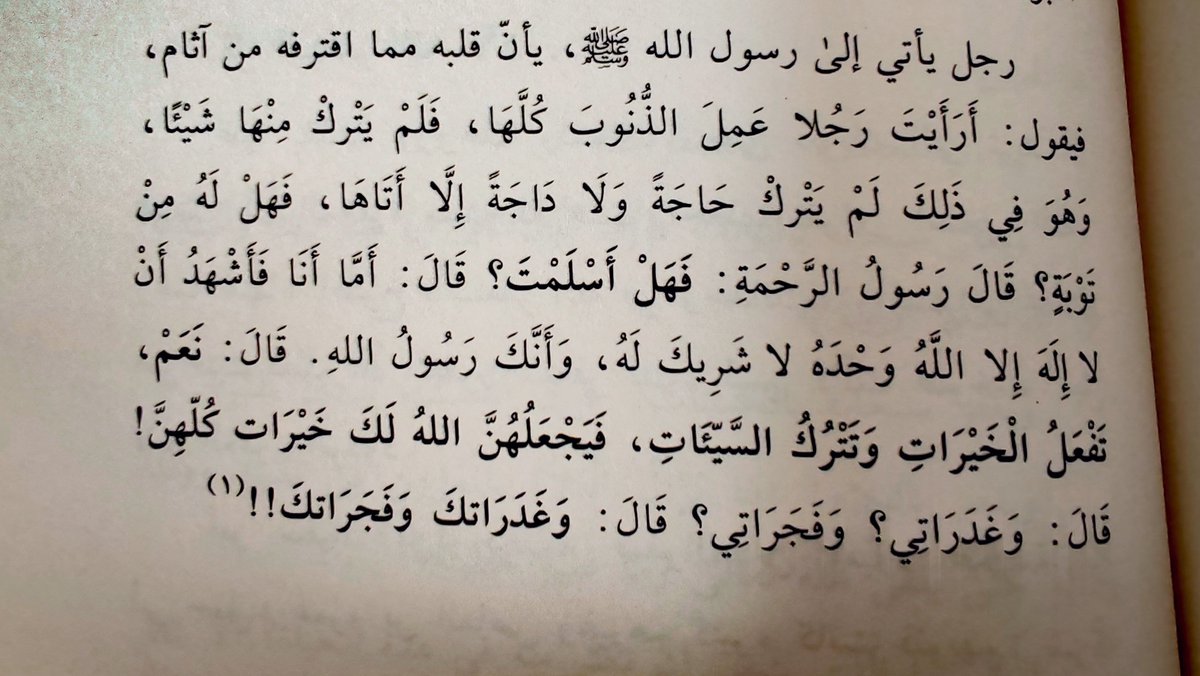 رجل يأتي إلىٰ رسول الله ﷺ، يأنّ قلبه مما اقترفه من آثام،
فيقول: أَرَأَيْتَ رَجُلا عَمِلَ الذُّنُوبَ كُلَّهَا، فَلَمْ يَتْركْ مِنْهَا شَيْئًا،
وَهُوَ فِي ذَلِكَ لَمْ يَتْركْ حَاجَةً وَلَا دَاجَةً إِلَّا أَتَاهَا، فَهَلْ لَهُ مِنْ
تَوْبَةٍ؟ قَالَ رَسُولُ الرَّحْمَةِ: فَهَلْ أَسْلَمْتَ؟ قَالَ: أَمَّا أَنَا فَأَشْهَدُ أَنْ
لا إِلَهَ إِلا اللَّهُ وَحْدَهُ لا شَرِيكَ لَهُ، وَأَنَّكَ رَسُولُ اللهِ. قَالَ: نَعَمْ،
تَفْعَلُ الْخَيْرَاتِ وَتَتْرُكُ السَّيِّئَاتِ، فَيَجْعَلُهُنَّ اللهُ لَكَ خَيْرَات كُلّهِنَّ!
قَالَ: وَغَدَرَاتِي؟ وَفَجَرَاتِي؟ قَالَ: وَغَدَرَاتكَ وَفَجَرَاتكَ!!(١)